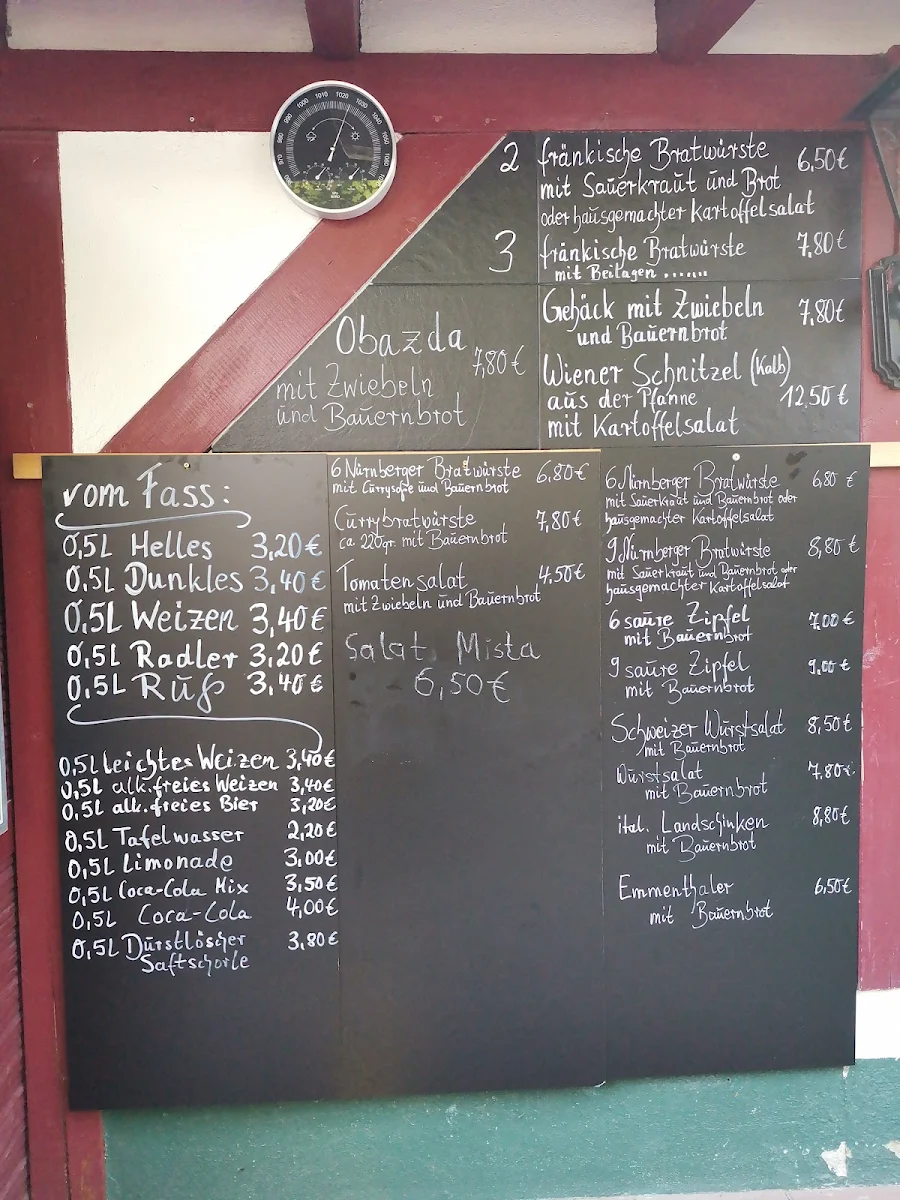 2 fränkische Bratwürste 6,50€
mit Sauerkraut und Brot
oder hausgemachter Kartoffelsalat
3 fränkische Bratwürste 7,80€
mit Beilagen .......
Obazda
7,80€
mit Zwiebeln
und Bauernbrot
Gehäck mit Zwiebeln 7,80€
und Bauernbrot
Wiener Schnitzel (Kalb)
aus der Pfanne 12,50€
mit Kartoffelsalat
vom Fass:
0,5L Helles 3,20€
0,5L Dunkles 3,40€
0,5L Weizen 3,40€
0,5L Radler 3,20€
0,5L Ruß 3,40€
0,5L leichtes Weizen 3,40€
0,5L alk.freies Weizen 3,40€
0,5L alk.freies Bier 3,20€
0,5L Tafelwasser 2,20€
0,5L Limonade 3,00€
0,5L Coca-Cola Mix 3,50€
0,5L Coca-Cola 4,00€
0,5L Durstlöscher 3,80€
Saftschorle
6 Nürnberger Bratwürste 6,80€
mit Currysoße und Bauernbrot
Currybratwürste 7,80€
ca 220gr. mit Bauernbrot
Tomatensalat 4,50€
mit Zwiebeln und Bauernbrot
Salat Mista
6,50€
6 Nürnberger Bratwürste 6,80 €
mit Sauerkraut und Bauernbrot oder
hausgemachter Kartoffelsalat
9 Nürnberger Bratwürste 8,80€
mit Sauerkraut und Bauernbrot oder
hausgemachter Kartoffelsalat
6 saure Zipfel 7,00€
mit Bauernbrot
9 saure Zipfel 9,00€
mit Bauernbrot
Schweizer Wurstsalat 8,50€
mit Bauernbrot
Wurstsalat 7.80€
mit Bauernbrot
ital. Landschinken 8,80€
mit Bauernbrot
Emmenthaler 6,50€
mit Bauernbrot